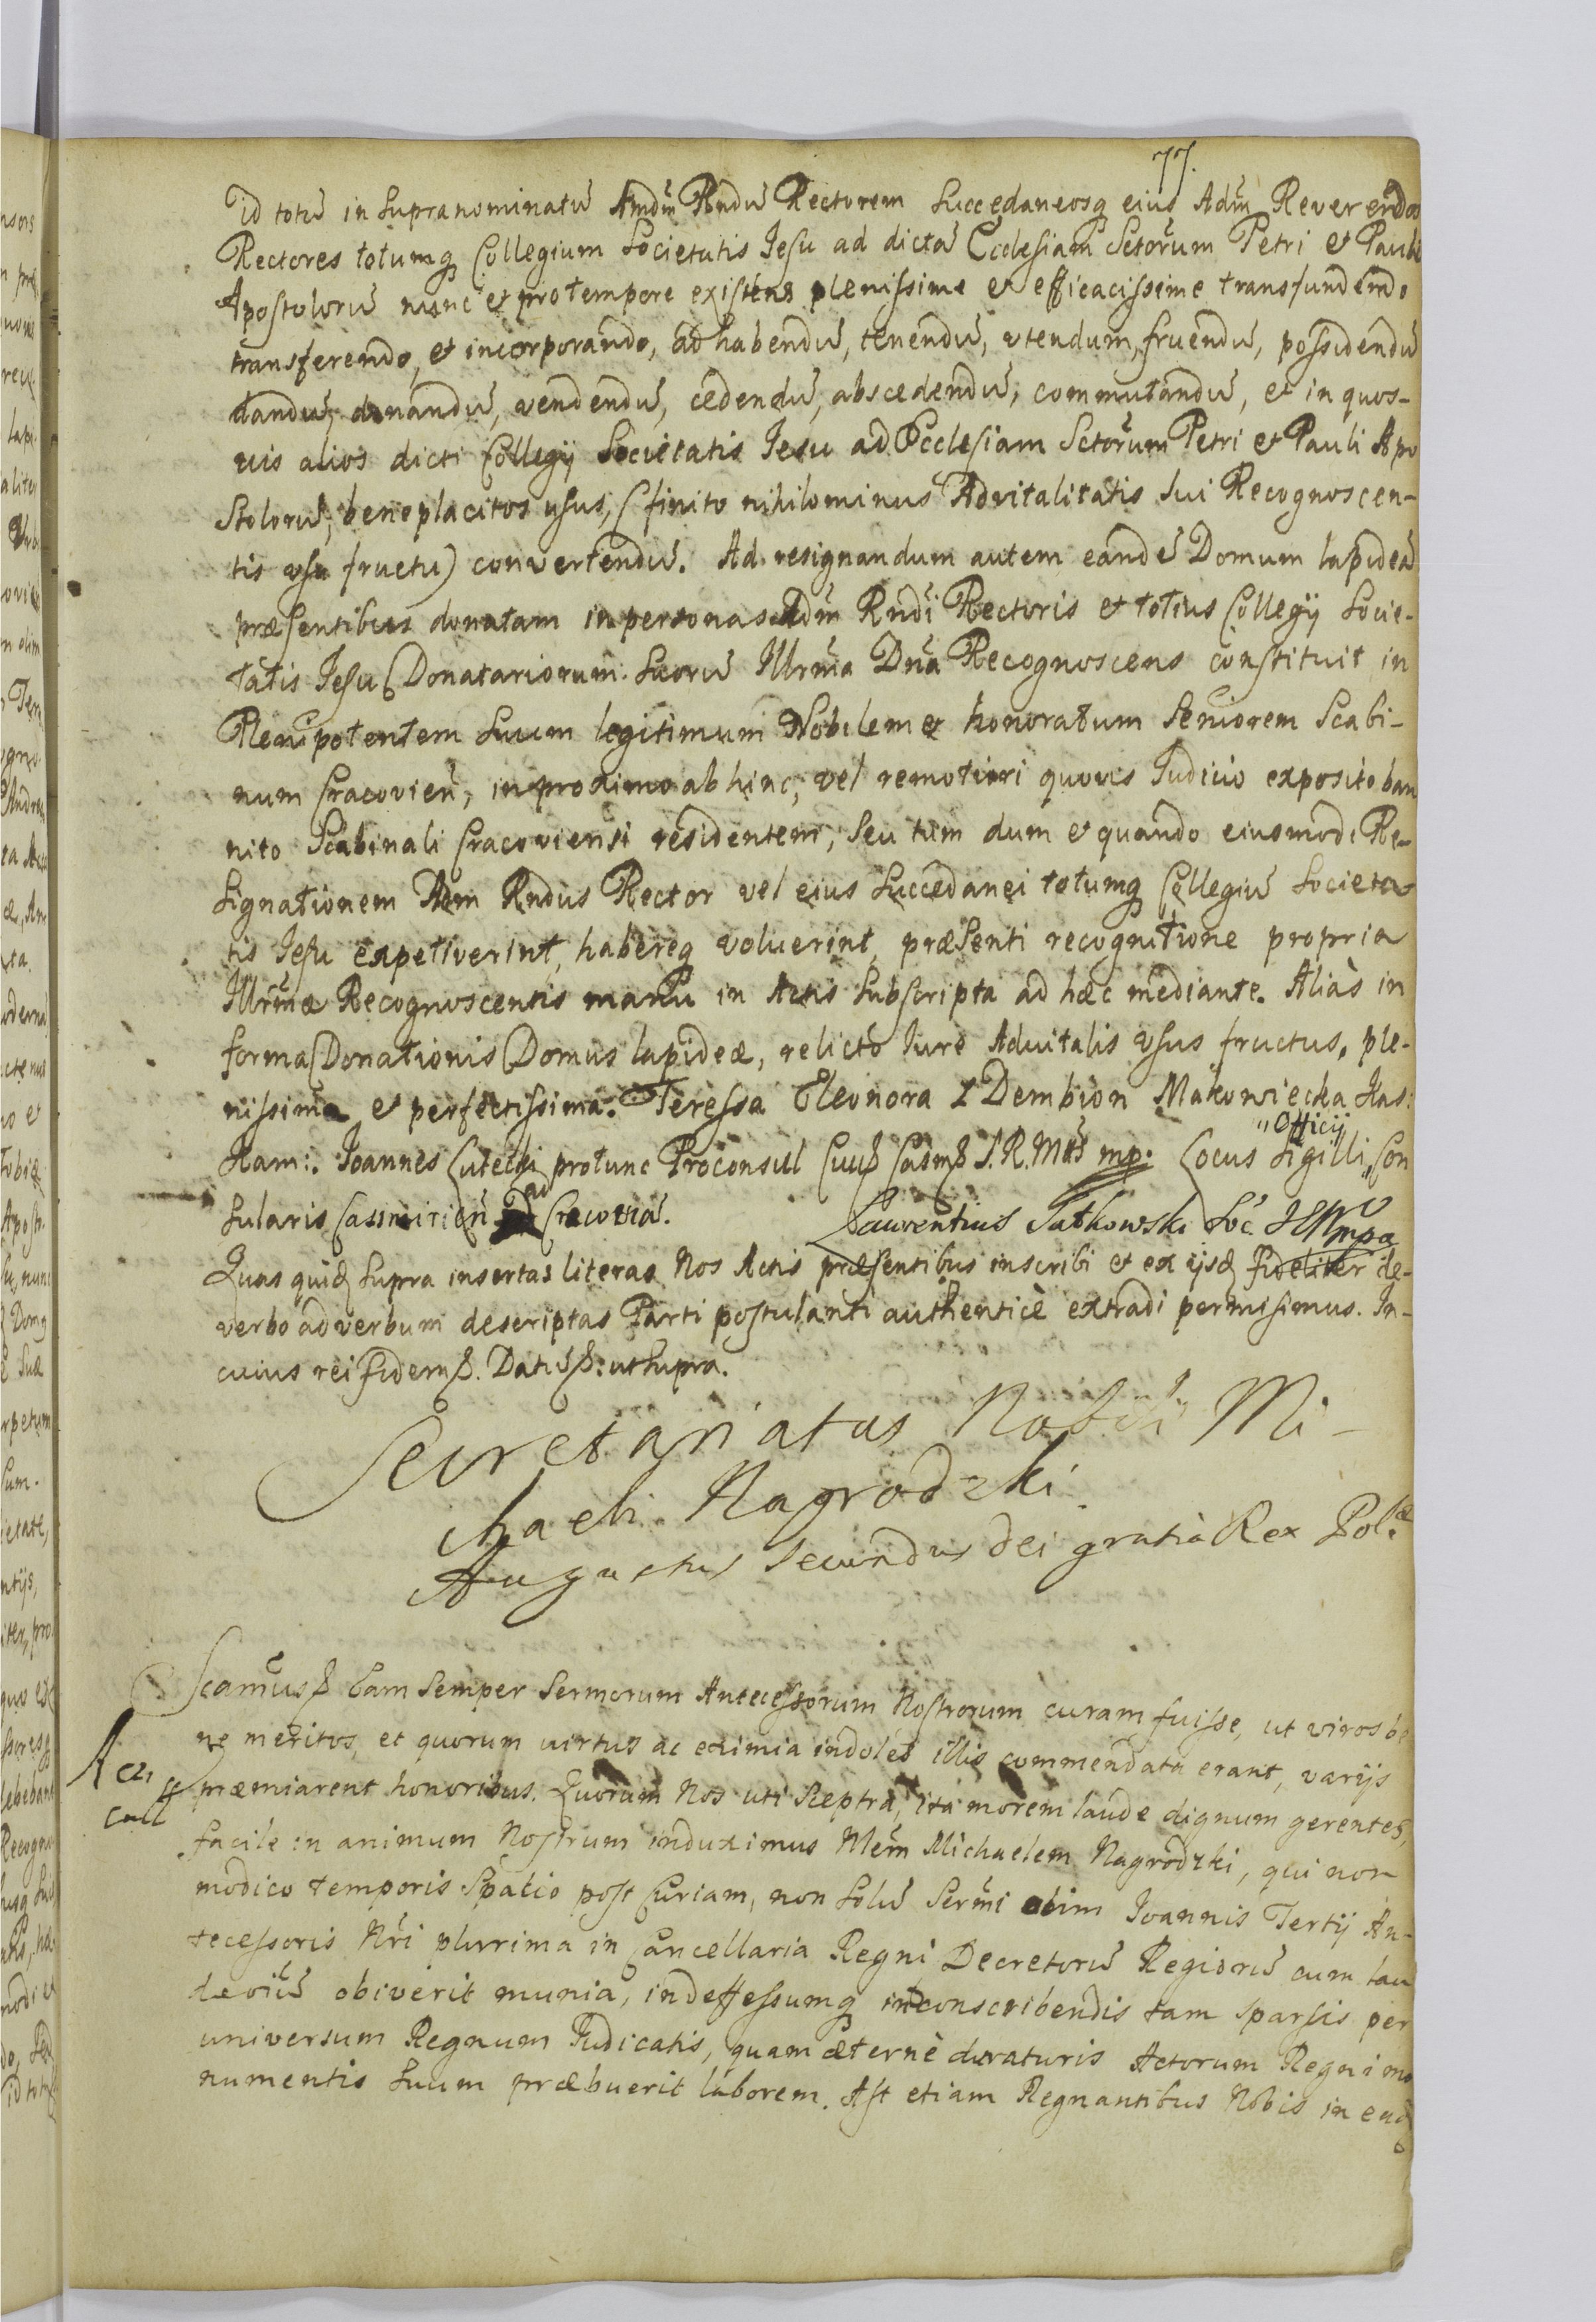 77.
id totũ in supranominatũ Amdm̃ Rndũ Rectorem Succedaneosq eius Adm̃ Reverendos
Rectores totumq Collegium Societatis Iesu ad dictã Ecclesiam Sctorum Petri et Pauli
Apostolorũ nunc et pro tempore existens plenissime et efficacissime transfundendo
transferendo, et incorporando, ad habendũ, tenendũ, utendum, fruendũ, possidendũ
dandũ, donandũ, vendendũ, cedendũ, abscedendũ, commutandũ, et in quos-
vis alios dicti Collegij Societatis Iesu ad Ecclesiam Sctorum Petri et Pauli Apo
stolorũ, beneplacitos usus, (finito nihilominus Advitalitatis sui Recognoscen-
tis usu fructu) convertendũ. Ad resignandum autem eandẽ Domum lapideã
præsentibus donatam in personas Adm̃ Rndi Rectoris et totius Collegij Socie-
tatis Iesu Donatariorum suorũ Illrma Dna Recognoscens constituit in
Plenipotentem suum legitimum Nobilem et honoratum Seniorem Scabi-
num Cracovien, in proximo abhinc, vel remotiori quovis Iudicio exposito ban
nito Scabinali Cracoviensi residentem, seu tum dum et quando eiusmodi Re-
signationem Adm Rndus Rector vel eius Succedanei totumq Collegiũ Societa
tis Iesu expetiverint, habereq voluerint, præsenti recognitione propria
Illrmæ Recognoscentis manu in Actis subscripta ad hæc mediante. Aliàs in
forma Donationis Domus lapideæ, relicto Iure Advitalis usus fructus, ple-
nissima et perfectissima. Teressa Eleonora z Dembion Makowiecka Kas:
Kam:. Ioannes protunc Proconsul S. R. Mtis mp. Locus Sigilli "Officij" Con
sularis Casimirien ad Cracoviã. Laurentius Sutkowski Soc mpa
Quas quid supra insertas literas Nos Actis præsentibus inscribi et ex ijsd fideliter de-
verbo ad verbum descriptas Parti postulanti authenticè extradi permisimus. In-
cuius rei fidem. Dat: ut supra.
Secretariatus Nobili Mi-
chaeli Nagrodzki
Augustus Secundus dei gratia Rex Pol:æ
Eam semper Sermorum Antecessorum Nostrorum curam fuisse, ut viros be
ne meritos, et quorum virtus ac eximia indoles illis commendata erant, varijs
præmiarent honoribus. Quorum Nos uti Sceptra, ita morem laude dignum gerentes,
facile in animum Nostrum induximus Michaelem Nagrodzki, qui non
modico temporis Spatio post Curiam, non solũ Sermi olim Ioannis Tertij An-
tecessoris Nri plurima in Cancellaria Regni Decretorũ Regiorũ cum lau
de obiverit munia, indeffessumq in conscribendis tam sparsis per
universum Regnum Iudicatis, quam æternè duraturis Actorum Regni mo
numentis suum præbuerit laborem. Ast etiam Regnantibus Nobis in ead